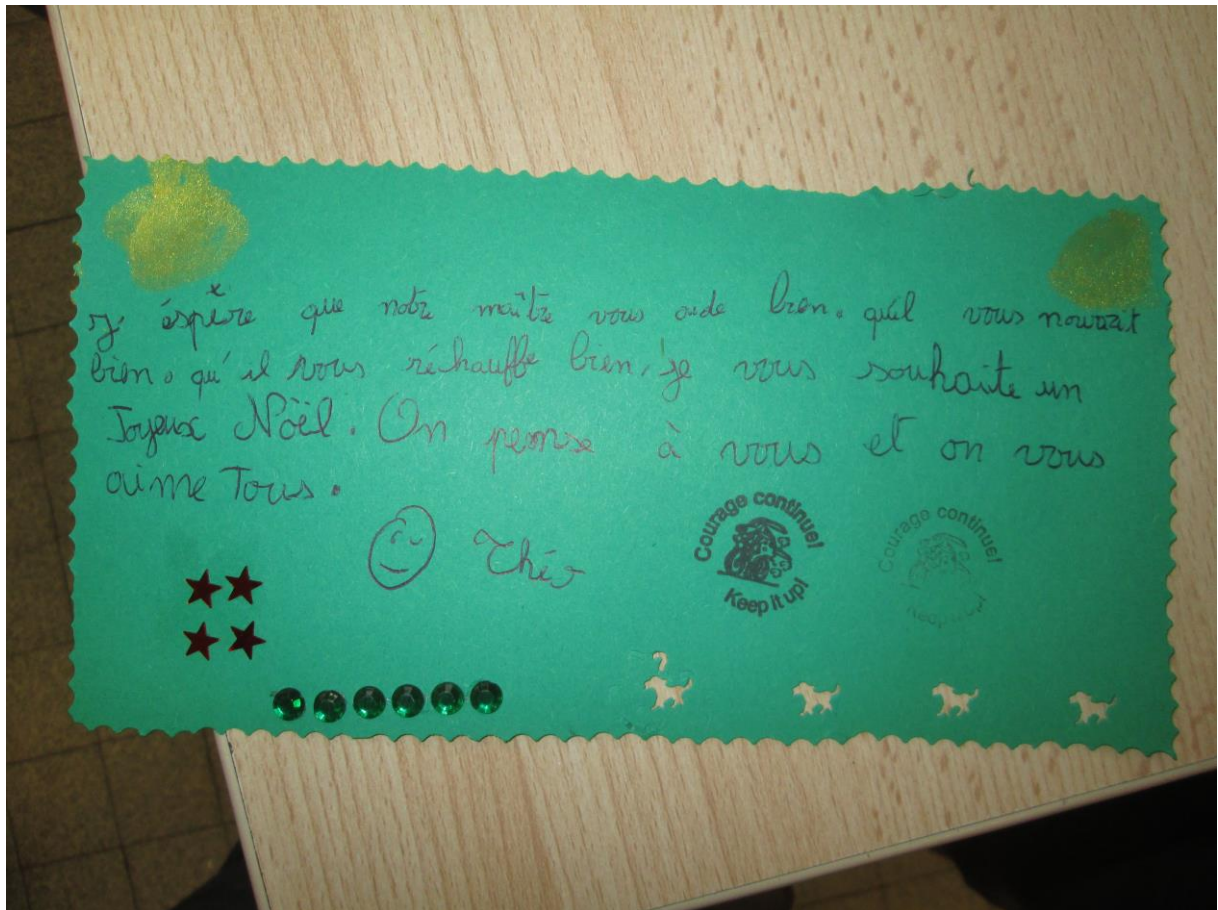 j' éspère que notre maître vous aide bien. qu'il vous nourrit
bien. qu'il vous réchauffe bien, je vous souhaite un
Joyeux Nöël. On pense à vous et on vous
aime Tous.
Théo
Courage continue!
Keep it up!
Courage continue!
Keep it up!